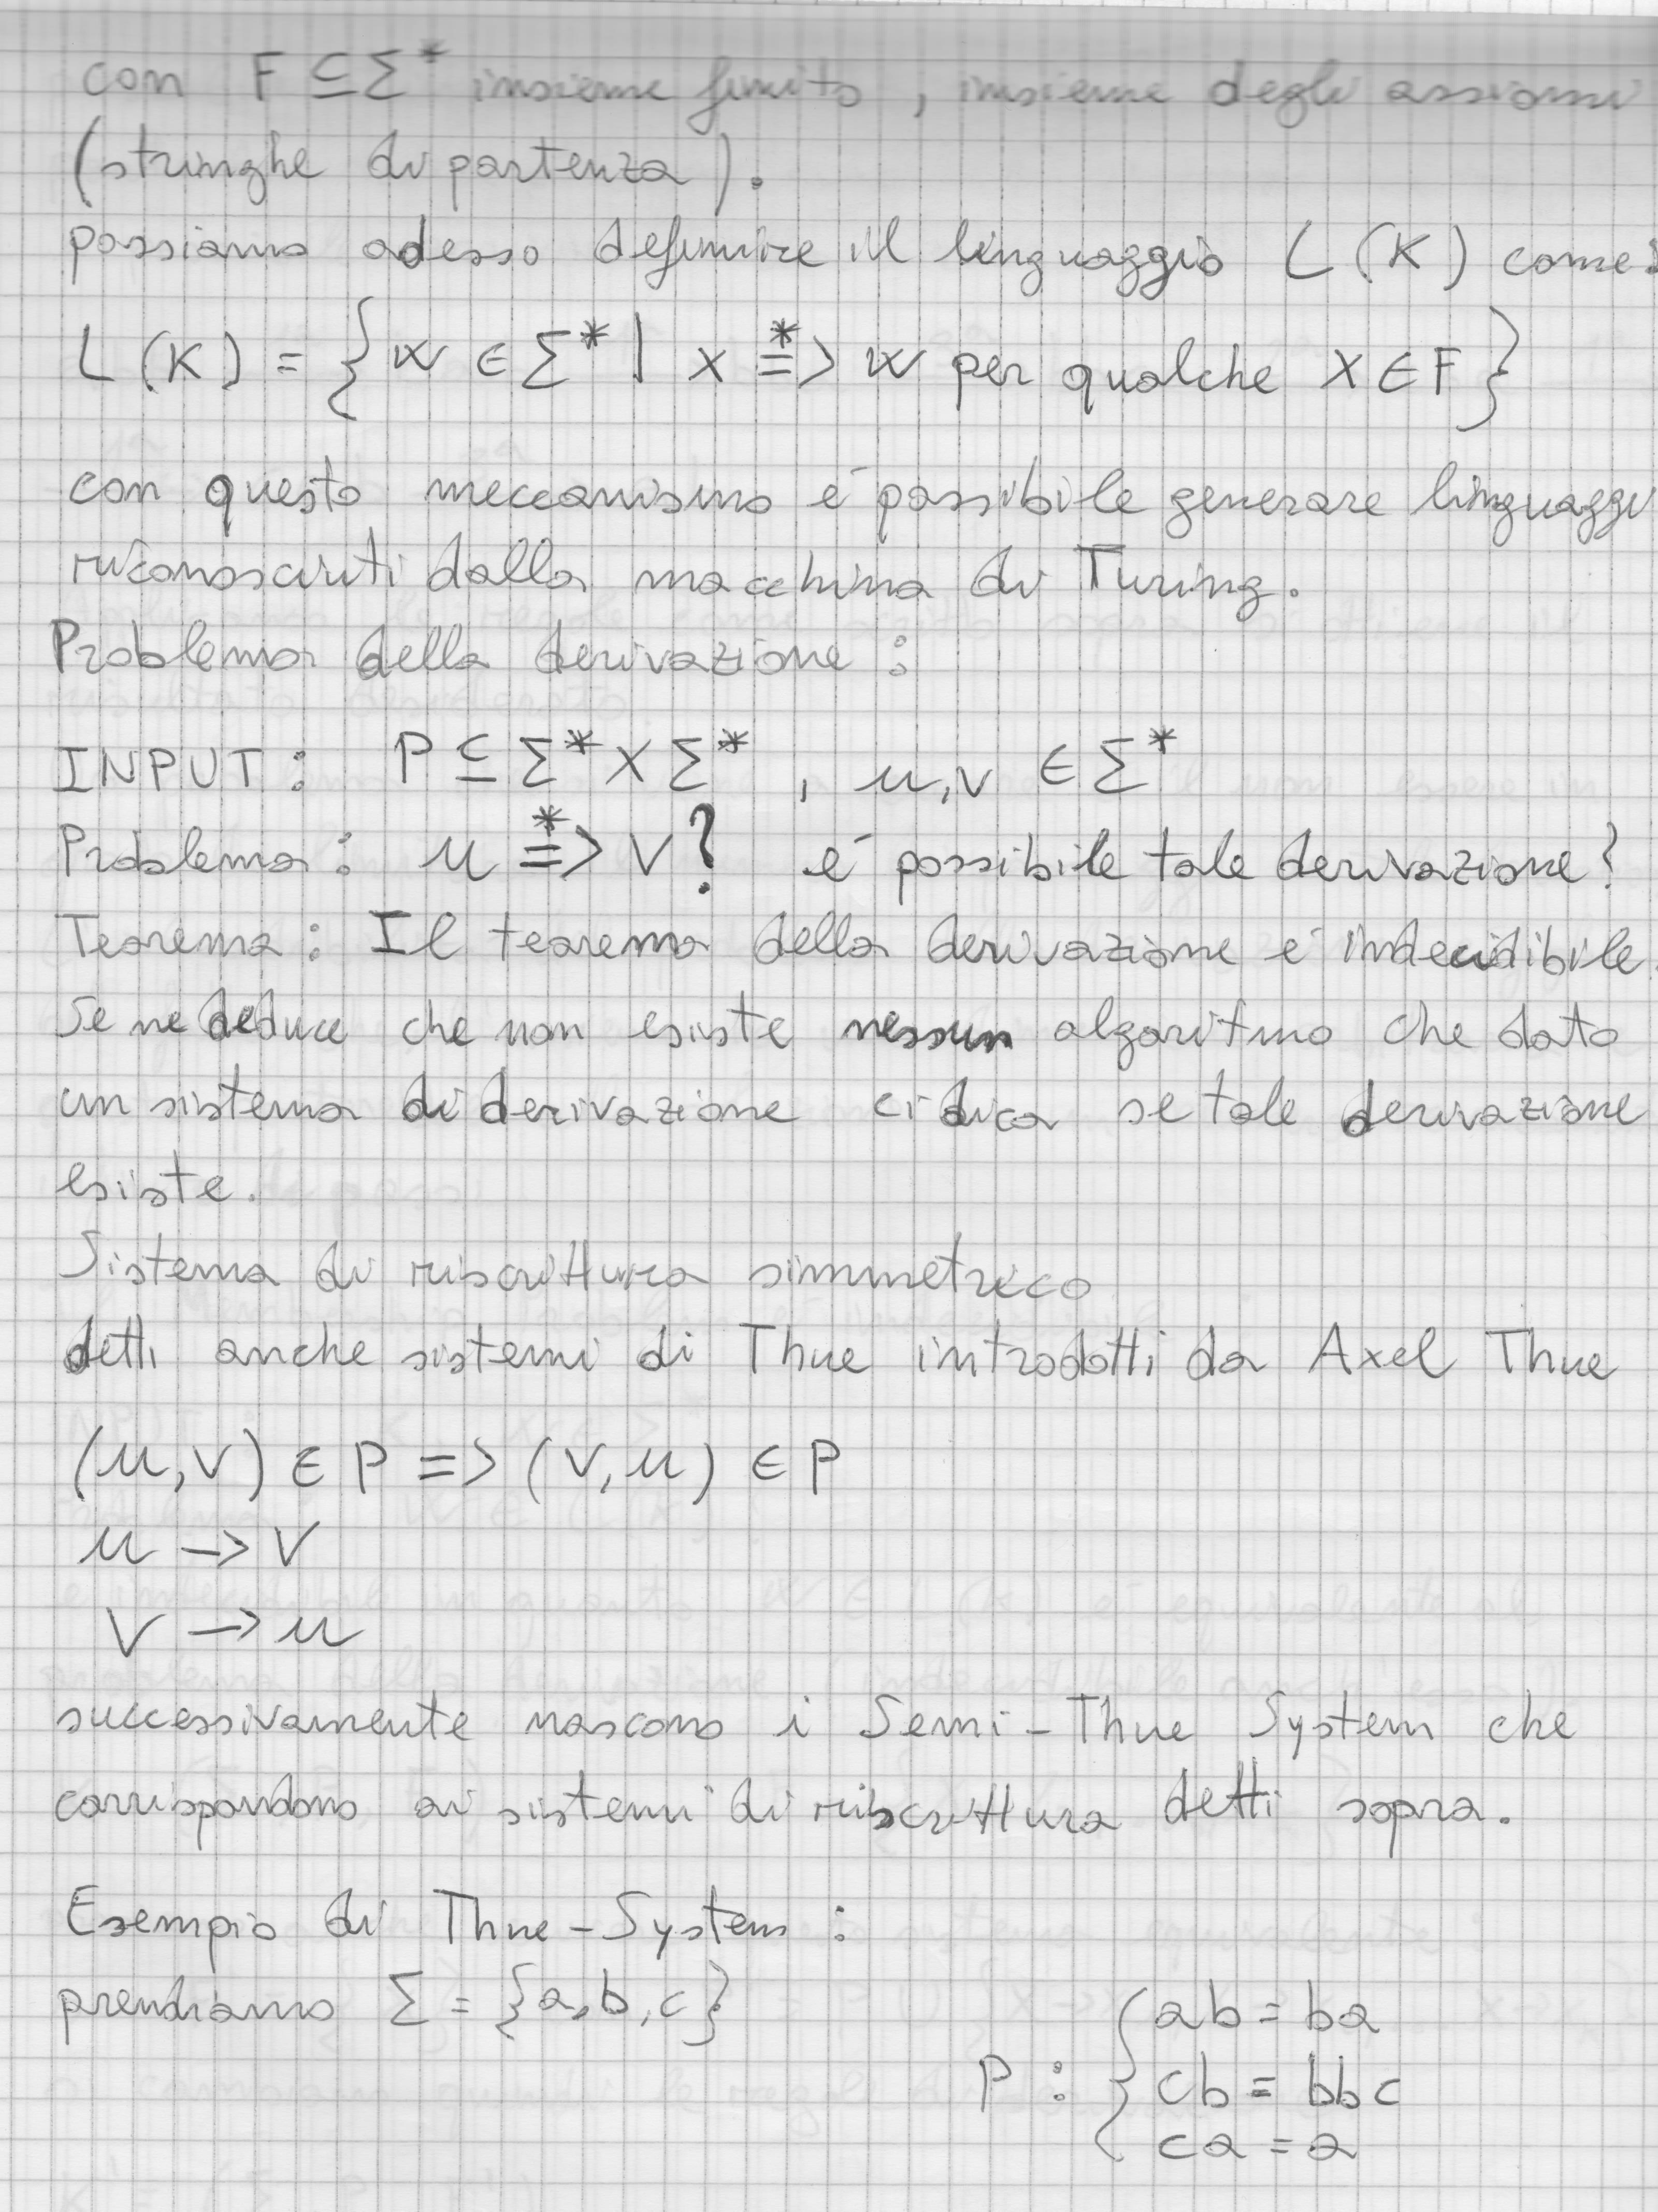 con F ⊆ Σ* insieme finito, insieme degli assiomi
(stringhe di partenza).
possiamo adesso definire il linguaggio L(K) come:
L(K) = { w ∈ Σ* | x *=> w per qualche x ∈ F }
con questo meccanismo é possibile generare linguaggi
riconosciuti dalla macchina di Turing.
Problema della derivazione :
INPUT : P ⊆ Σ* x Σ* , u,v ∈ Σ*
Problema : u *=> v ? é possibile tale derivazione?
Teorema : Il teorema della derivazione é indecidibile.
Se ne deduce che non esiste nessun algoritmo che dato
un sistema di derivazione ci dica se tale derivazione
esiste.
Sistema di riscrittura simmetrico
detti anche sistemi di Thue introdotti da Axel Thue
(u,v) ∈ P => (v,u) ∈ P
u -> v
v -> u
successivamente nascono i Semi-Thue System che
corrispondono ai sistemi di riscrittura detti sopra.
Esempio di Thue-System :
prendiamo Σ = {a,b,c}
P : { ab = ba
cb = bbc
ca = a